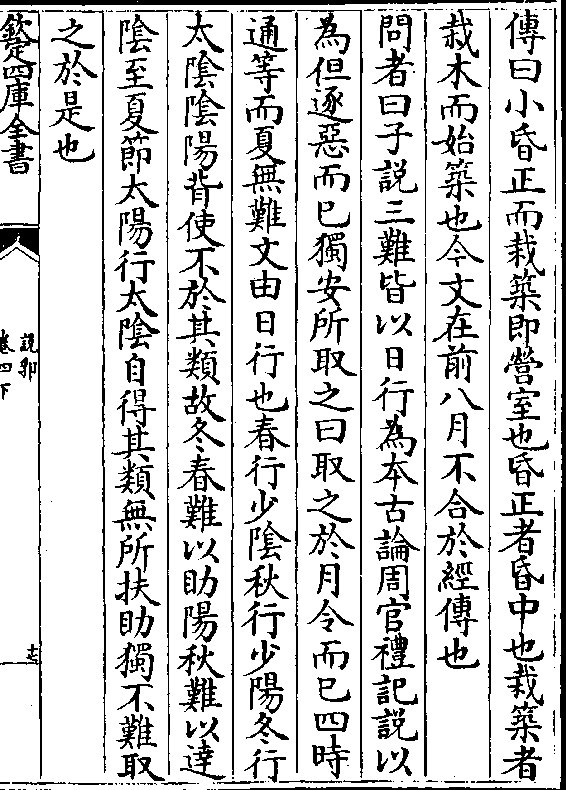 傳曰小昏正而栽築即營室也昏正者昏中也栽築者
栽木而始築也今文在前八月不合於經傳也
問者曰子說三難皆以日行為本古論周官禮記說以
為但逐惡而已獨安所取之曰取之於月令而已四時
通等而夏無難文由日行也春行少陰秋行少陽冬行
太陰陰陽背使不於其類故冬春難以助陽秋難以達
陰至夏節太陽行太陰自得其類無所扶助獨不難取
之於是也
欽定四庫全書
說郛
卷四下